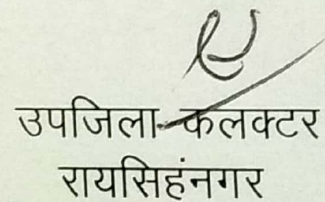 उपजिला कलक्टर
रायसिहंनगर